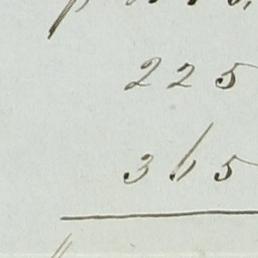 225
365